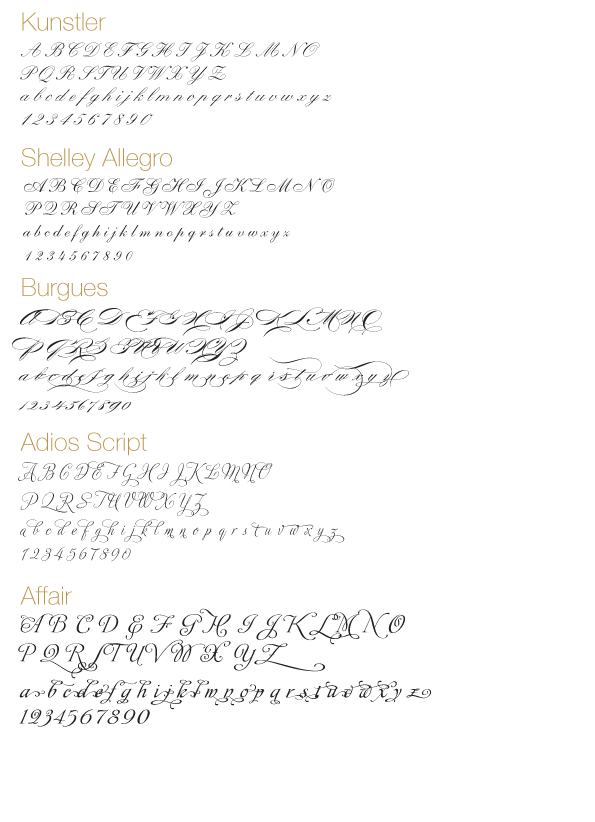 Kunstler
A B C D E F G H I J K L M N O
P Q R S T U V W X Y Z
a b c d e f g h i j k l m n o p q r s t u v w x y z
1 2 3 4 5 6 7 8 9 0
Shelley Allegro
A B C D E F G H I J K L M N O
P Q R S T U V W X Y Z
a b c d e f g h i j k l m n o p q r s t u v w x y z
1 2 3 4 5 6 7 8 9 0
Burgues
A B C D E F G H I J K L M N O
P Q R S T U V W X Y Z
a b c d e f g h i j k l m n o p q r s t u v w x y z
1 2 3 4 5 6 7 8 9 0
Adios Script
A B C D E F G H I J K L M N O
P Q R S T U V W X Y Z
a b c d e f g h i j k l m n o p q r s t u v w x y z
1 2 3 4 5 6 7 8 9 0
Affair
A B C D E F G H I J K L M N O
P Q R S T U V W X Y Z
a b c d e f g h i j k l m n o p q r s t u v w x y z
1 2 3 4 5 6 7 8 9 0